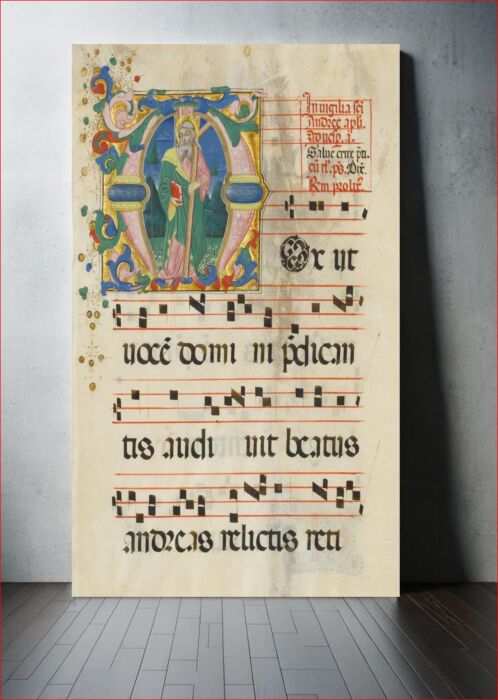 In vigilia sc̄i
Andree apl̄i.
Ad vesp̄. a.
Salue crux p̄ti.
cū
ps. Dix̄.
prolix̄.
MOx ut
uocē domi ni p̄dican
tis audi uit beatus
andreas relictis reti